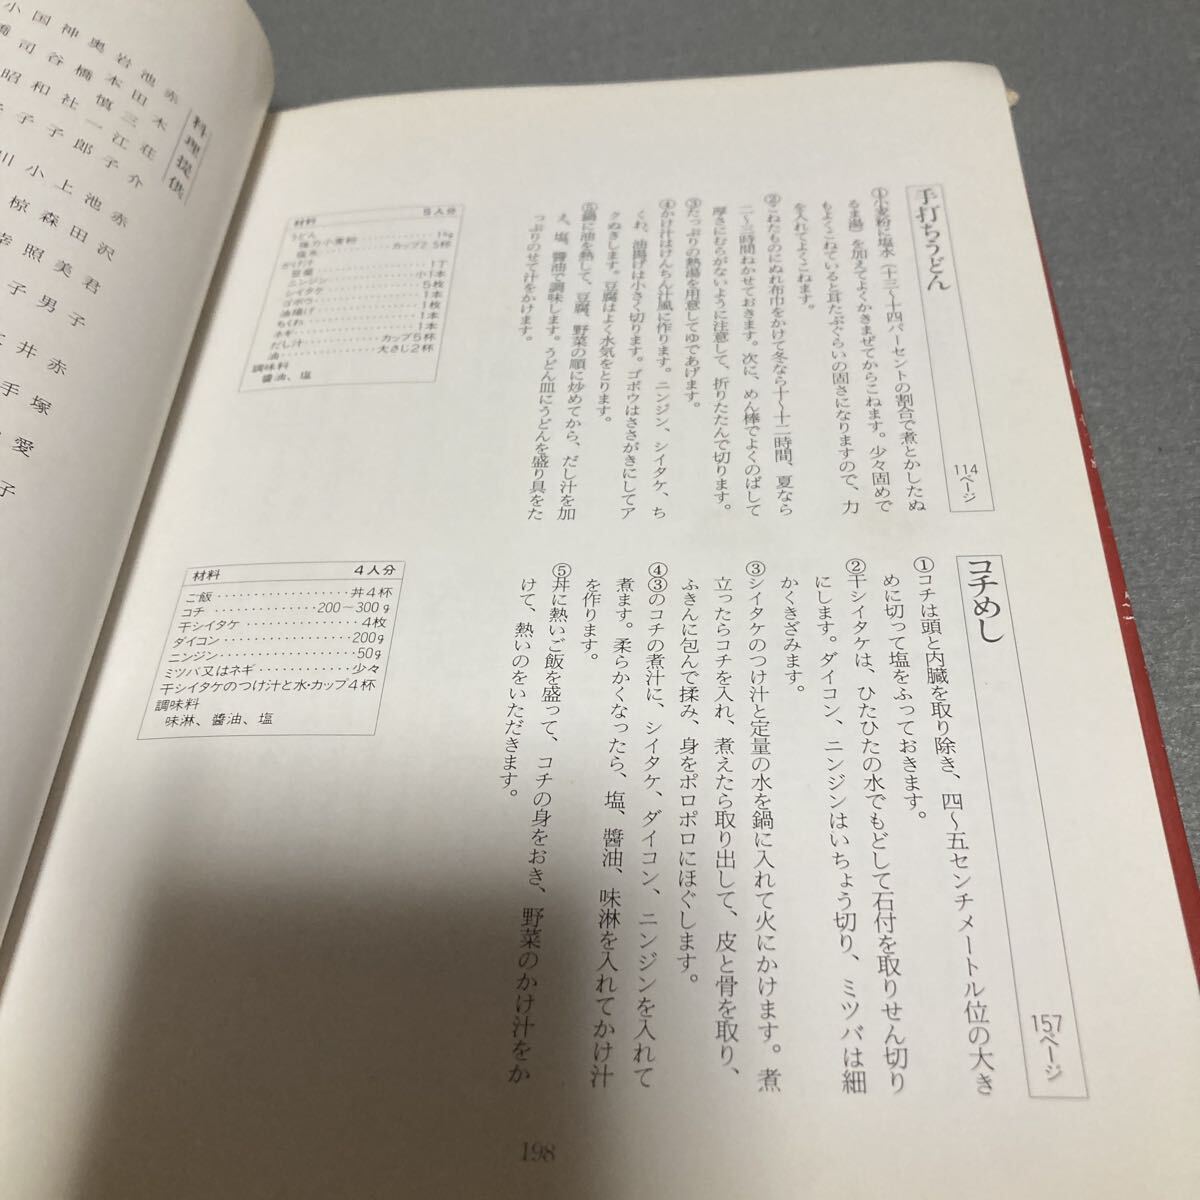 手打ちうどん
114ページ
①小麦粉に塩水（十三〜十四パーセントの割合で煮とかしたぬ
るま湯）を加えてよくかきまぜてからこねます。少々固めで
もよくこねていると耳たぶぐらいの固さになりますので、力
を入れてよくこねます。
②こねたものにぬれ布巾をかけて冬なら十〜十二時間、夏なら
二〜三時間ねかせておきます。次に、めん棒でよくのばして
厚さにむらがないように注意して、折りたたんで切ります。
③たっぷりの熱湯を用意してゆであげます。
④かけ汁はけんちん汁風に作ります。ニンジン、シイタケ、ち
くわ、油揚げは小さく切ります。ゴボウはささがきにしてア
クぬきします。豆腐はよく水気をとります。
⑤鍋に油を熱して、豆腐、野菜の順に炒めてから、だし汁を加
え、塩、醬油で調味します。うどん皿にうどんを盛り具をた
っぷりのせて汁をかけます。
材料 5人分
うどん
強力小麦粉 1kg
塩水 カップ2.5杯
かけ汁
豆腐 1丁
ニンジン 小1本
シイタケ 5枚
ゴボウ 1本
油揚げ 1枚
ちくわ 1本
ネギ 1本
だし汁 カップ5杯
油 大さじ2杯
調味料
醬油、塩
コチめし
157ページ
①コチは頭と内臓を取り除き、四〜五センチメートル位の大き
めに切って塩をふっておきます。
②干シイタケは、ひたひたの水でもどして石付を取りせん切り
にします。ダイコン、ニンジンはいちょう切り、ミツバは細
かくきざみます。
③シイタケのつけ汁と定量の水を鍋に入れて火にかけます。煮
立ったらコチを入れ、煮えたら取り出して、皮と骨を取り、
ふきんに包んで揉み、身をポロポロにほぐします。
④③のコチの煮汁に、シイタケ、ダイコン、ニンジンを入れて
煮ます。柔らかくなったら、塩、醬油、味淋を入れてかけ汁
を作ります。
⑤丼に熱いご飯を盛って、コチの身をおき、野菜のかけ汁をか
けて、熱いのをいただきます。
材料 4人分
ご飯 丼4杯
コチ 200〜300g
干シイタケ 4枚
ダイコン 200g
ニンジン 50g
ミツバ又はネギ 少々
干シイタケのつけ汁と水・カップ4杯
調味料
味淋、醬油、塩
198
料理提供
赤木荘介
池田三江子
岩本慎一郎